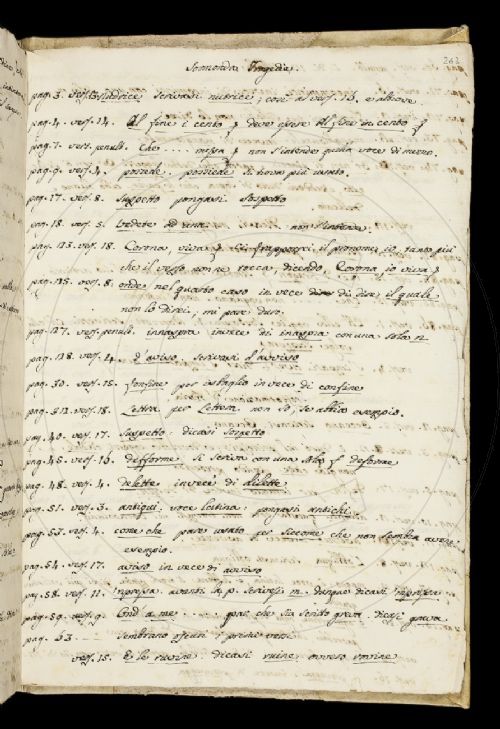 262
Tragedia.
pag. 3. vers. nudrice scrivasi nutrice; così al vers. 13. e altrove
pag. 4. vers. 14. Al fine i cento deve essere Al fine in cento
pag. 7. vers. penult. Che .... messa non s'intende quella voce di mezzo.
pag. 9. vers. 4. possede possiede si trova più usato.
pag. 17. vers. 8. Suspetto pongasi Sospetto
pag. 18. vers. 5. Vedete ad una .... non s'intende.
pag. 125. vers. 18. Corona viva frapporrei il pronome io, tanto più
che il verso non ne tocca, dicendo, Corona, io viva
pag. 125. vers. 8. onde nel quarto caso in vece di dire, il quale
non lo direi, mi pare duro.
pag. 127. vers. penult. innaspra invece di inaspra con una sola n.
pag. 128. vers. 4. d'aviso, scrivasi d'avviso
pag. 30. vers. 15. fonfine per isbaglio in vece di confine
pag. vers. 18. Lettra per Lettera non so se abbia esempio.
pag. 40. vers. 17. Suspetto: dicasi Sospetto
pag. 45. vers. 16. difforme. Si scriva con una sola f deforme
pag. 48. vers. 4. delette invece di dilette.
pag. 51. vers. 3. antiqui. voce latina: pongasi antichi.
pag. 53. vers. 4. come che pare usato per siccome che non sembra avere
esempio.
pag. 54. vers. 17. aviso in vece di avviso
pag. 58. vers. 11. inpressa. avanti la p. scrivesi m. dunque dicasi impressa
pag. 59. vers. 9. Cond. a me .... grae, che sia scritto greva. dicasi grava.
pag. 63 .... sembrano oscuri i primi versi
vers. 15. E le ruvine. dicasi ruine, ovvero rovine